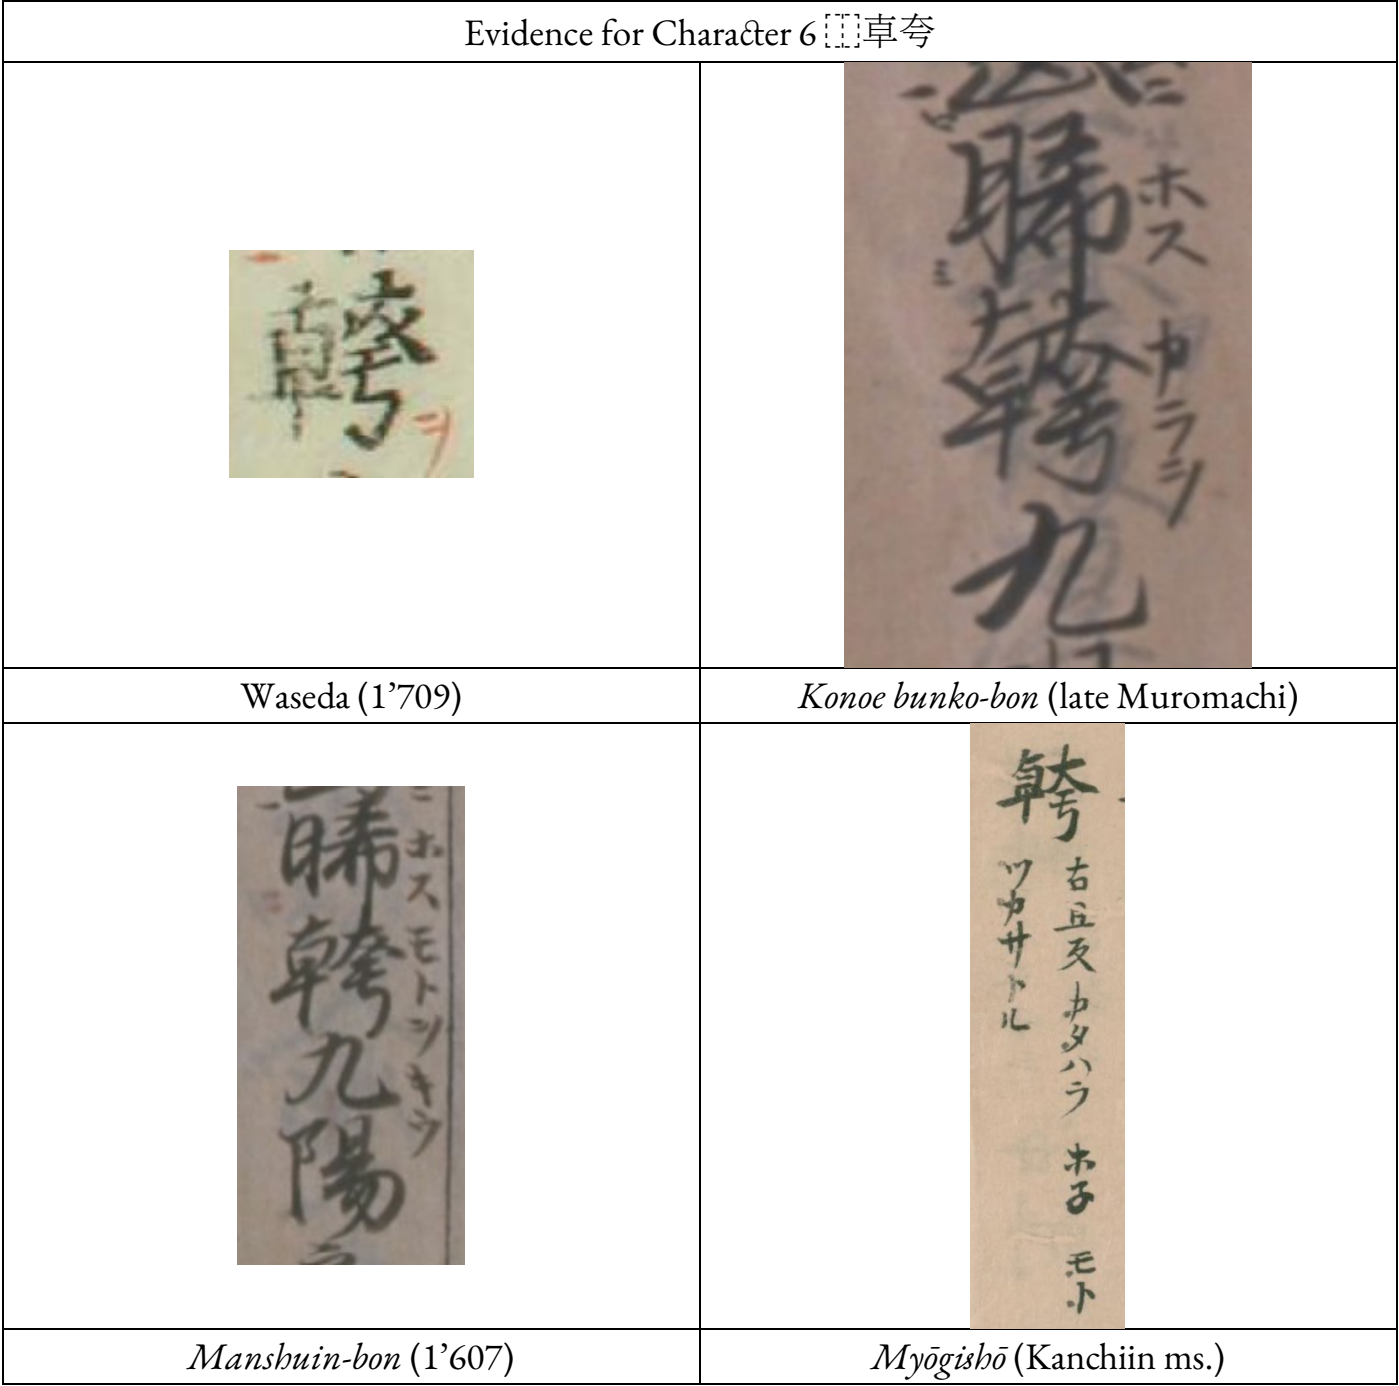 Evidence for Character 6 ⿰𠦝夸
ヲ
ニ
一
ホス
晞
ミ
カラシ
⿰𠦝夸
九
Waseda (1’709)
Konoe bunko-bon (late Muromachi)
ニ
一
晞⿰𠦝夸九陽
ホスモトツキウ
⿰𠦝夸
古丑反カタハラ ホ子 モト
ツカサトル
Manshuin-bon (1’607)
Myōgishō (Kanchiin ms.)